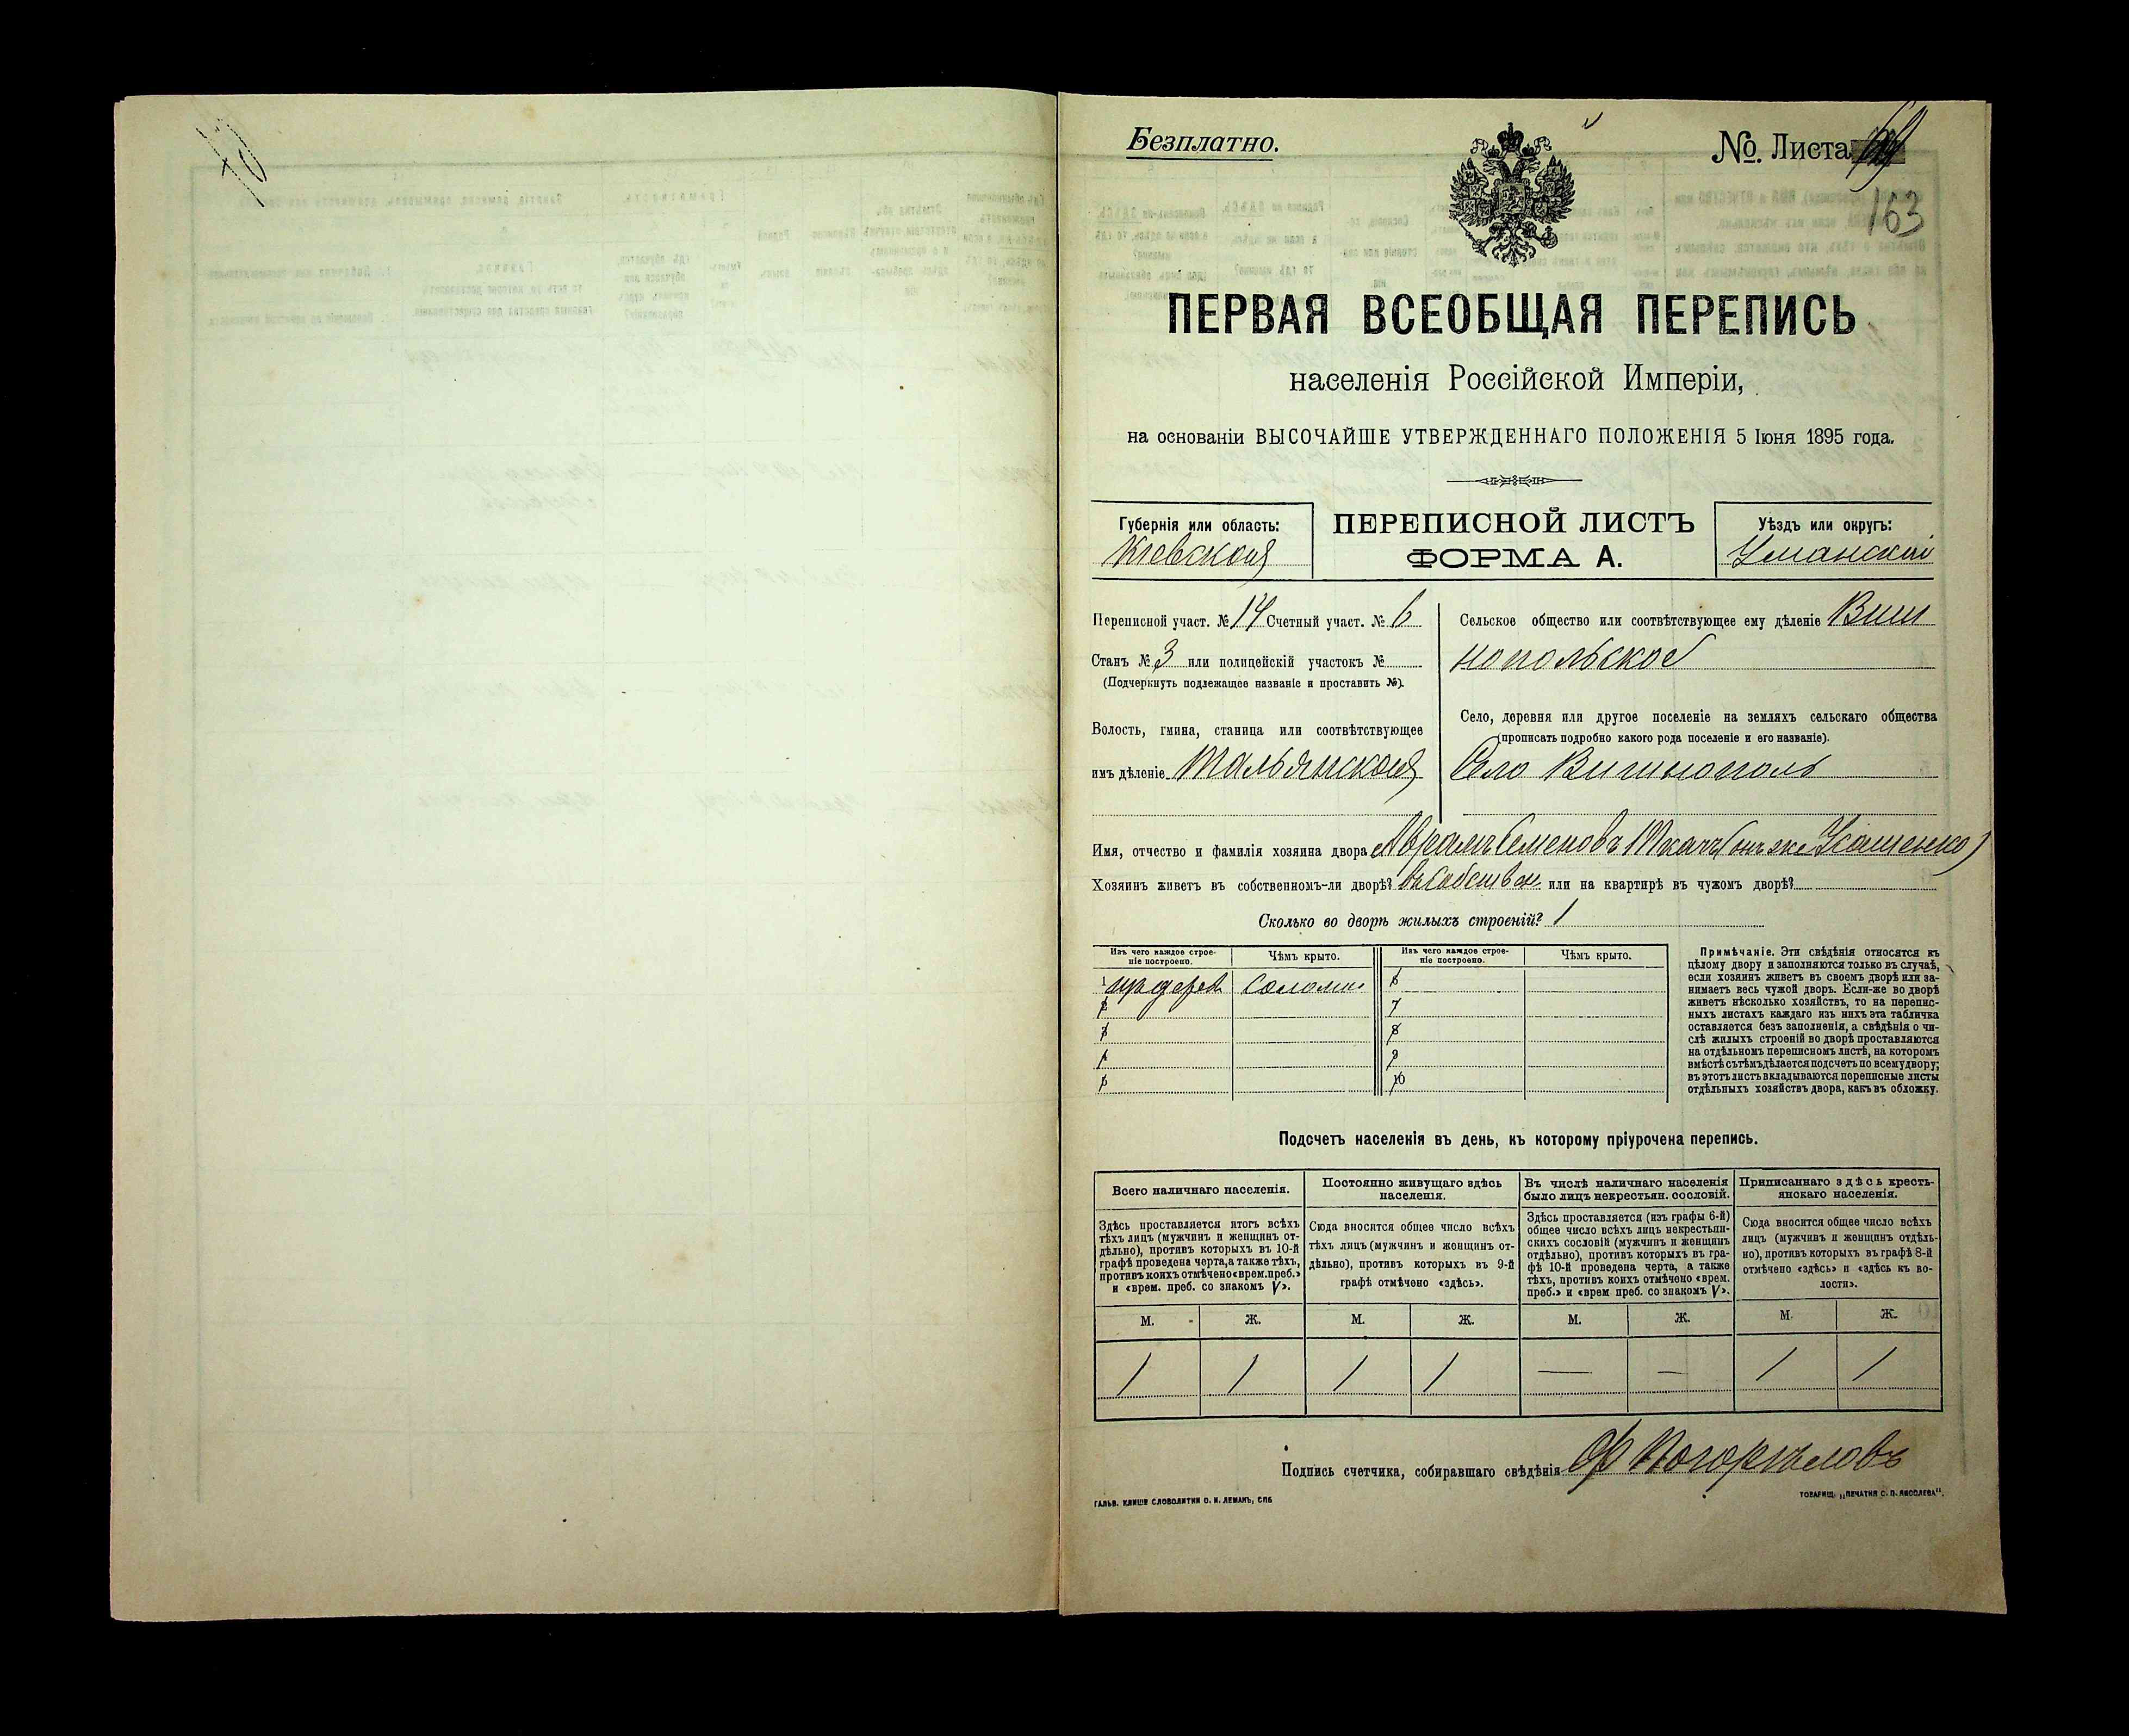 Безплатно.
№ Листа
163
ПЕРВАЯ ВСЕОБЩАЯ ПЕРЕПИСЬ
населенія Россійской Имперіи,
на основаніи ВЫСОЧАЙШЕ УТВЕРЖДЕННАГО ПОЛОЖЕНІЯ 5 Іюня 1895 года.
Губернія или область:
Кіевская
ПЕРЕПИСНОЙ ЛИСТЪ
ФОРМА А.
Уѣздъ или округъ:
Уманскій
Переписной участ. № 14 Счетный участ. № 6
Станъ № 3 или полицейскій участокъ №
(Подчеркнуть подлежащее названіе и проставить №).
Волость, гмина, станица или соотвѣтствующее
имъ дѣленіе Тальянская
Сельское общество или соотвѣтствующее ему дѣленіе Виш
нопольское
Село, деревня или другое поселеніе на земляхъ сельскаго общества
(прописать подробно какого рода поселеніе и его названіе).
Село Вишнополь
Имя, отчество и фамилія хозяина двора Аврамъ Семеновъ Ткачъ (онъ же
Хозяинъ живетъ въ собственномъ-ли дворѣ? въ собствен. или на квартирѣ въ чужомъ дворѣ?
Сколько во дворѣ жилыхъ строеній? 1
Изъ чего каждое строе-
ніе построено.
Чѣмъ крыто.
Изъ чего каждое строе-
ніе построено.
Чѣмъ крыто.
1 изъ дерев. Солом. 6
2 7
3 8
4 9
5 10
Примѣчаніе. Эти свѣдѣнія относятся къ
цѣлому двору и заполняются только въ случаѣ,
если хозяинъ живетъ въ своемъ дворѣ или за-
нимаетъ весь чужой дворъ. Если-же во дворѣ
живетъ нѣсколько хозяйствъ, то на перепис-
ныхъ листахъ каждаго изъ нихъ эта табличка
оставляется безъ заполненія, а свѣдѣнія о чи-
слѣ жилыхъ строеній во дворѣ проставляются
на отдѣльномъ переписномъ листѣ, на которомъ
вмѣстѣ съ тѣмъ дѣлается подсчетъ по всему двору;
въ этотъ листъ вкладываются переписные листы
отдѣльныхъ хозяйствъ двора, какъ въ обложку.
Подсчетъ населенія въ день, къ которому пріурочена перепись.
Всего наличнаго населенія.
Здѣсь проставляется итогъ всѣхъ
тѣхъ лицъ (мужчинъ и женщинъ от-
дѣльно), противъ которыхъ въ 10-й
графѣ проведена черта, а также тѣхъ,
противъ коихъ отмѣчено «врем. преб.»
и «врем. преб. со знакомъ V».
Постоянно живущаго здѣсь
населенія.
Сюда вносится общее число всѣхъ
тѣхъ лицъ (мужчинъ и женщинъ от-
дѣльно), противъ которыхъ въ 9-й
графѣ отмѣчено «здѣсь».
Въ числѣ наличнаго населенія
было лицъ некрестьян. сословій.
Здѣсь проставляется (изъ графы 6-й)
общее число всѣхъ лицъ некрестьян-
скихъ сословій (мужчинъ и женщинъ
отдѣльно), противъ которыхъ въ гра-
фѣ 10-й проведена черта, а также
тѣхъ, противъ коихъ отмѣчено «врем.
преб.» и «врем преб. со знакомъ V».
Приписаннаго здѣсь кресть-
янскаго населенія.
Сюда вносится общее число всѣхъ
лицъ (мужчинъ и женщинъ отдѣль-
но), противъ которыхъ въ графѣ 8-й
отмѣчено «здѣсь» и «здѣсь къ во-
лости».
М. Ж. М. Ж. М. Ж. М. Ж.
1 1 1 1 — — 1 1
Подпись счетчика, собиравшаго свѣдѣнія Погорѣловъ
ГАЛЬВ. КЛИШЕ СЛОВОЛИТНИ О. И. ЛЕМАНЪ, СПБ
ТОВАРИЩ. „ПЕЧАТНЯ С. П. ЯКОВЛЕВА".